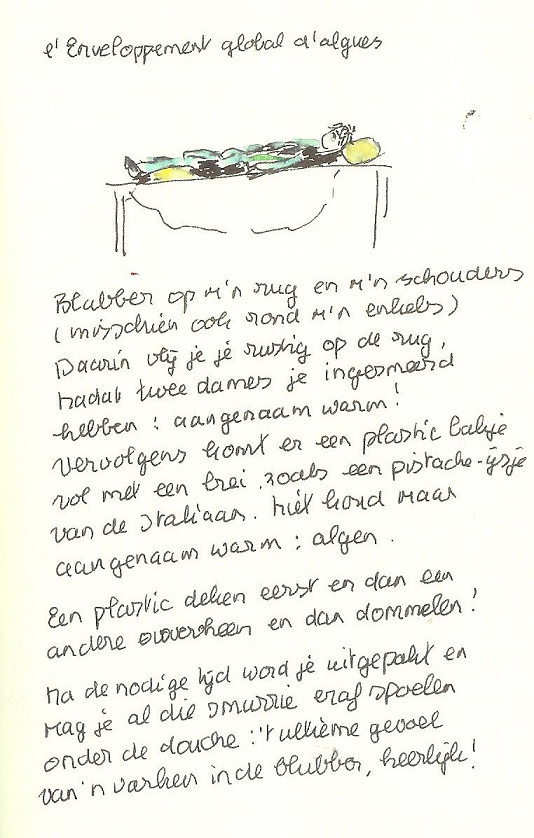 l'Enveloppement global d'algues
Blubber op m'n rug en m'n schouders
(misschien ook rond m'n enkels)
Daarin vlij je je rustig op de rug,
nadat twee dames je ingesmeerd
hebben : aangenaam warm!
Vervolgens komt er een plastic bakje
vol met een brei, zoals een pistache-ijsje
van de Italiaan. Niet koud maar
aangenaam warm : algen.
Een plastic deken eerst en dan een
andere eroverheen en dan dommelen!
Na de nodige tijd word je uitgepakt en
mag je al die smurrie eraf spoelen
onder de douche : 't ultieme gevoel
van 'n varken in de blubber, heerlijk!